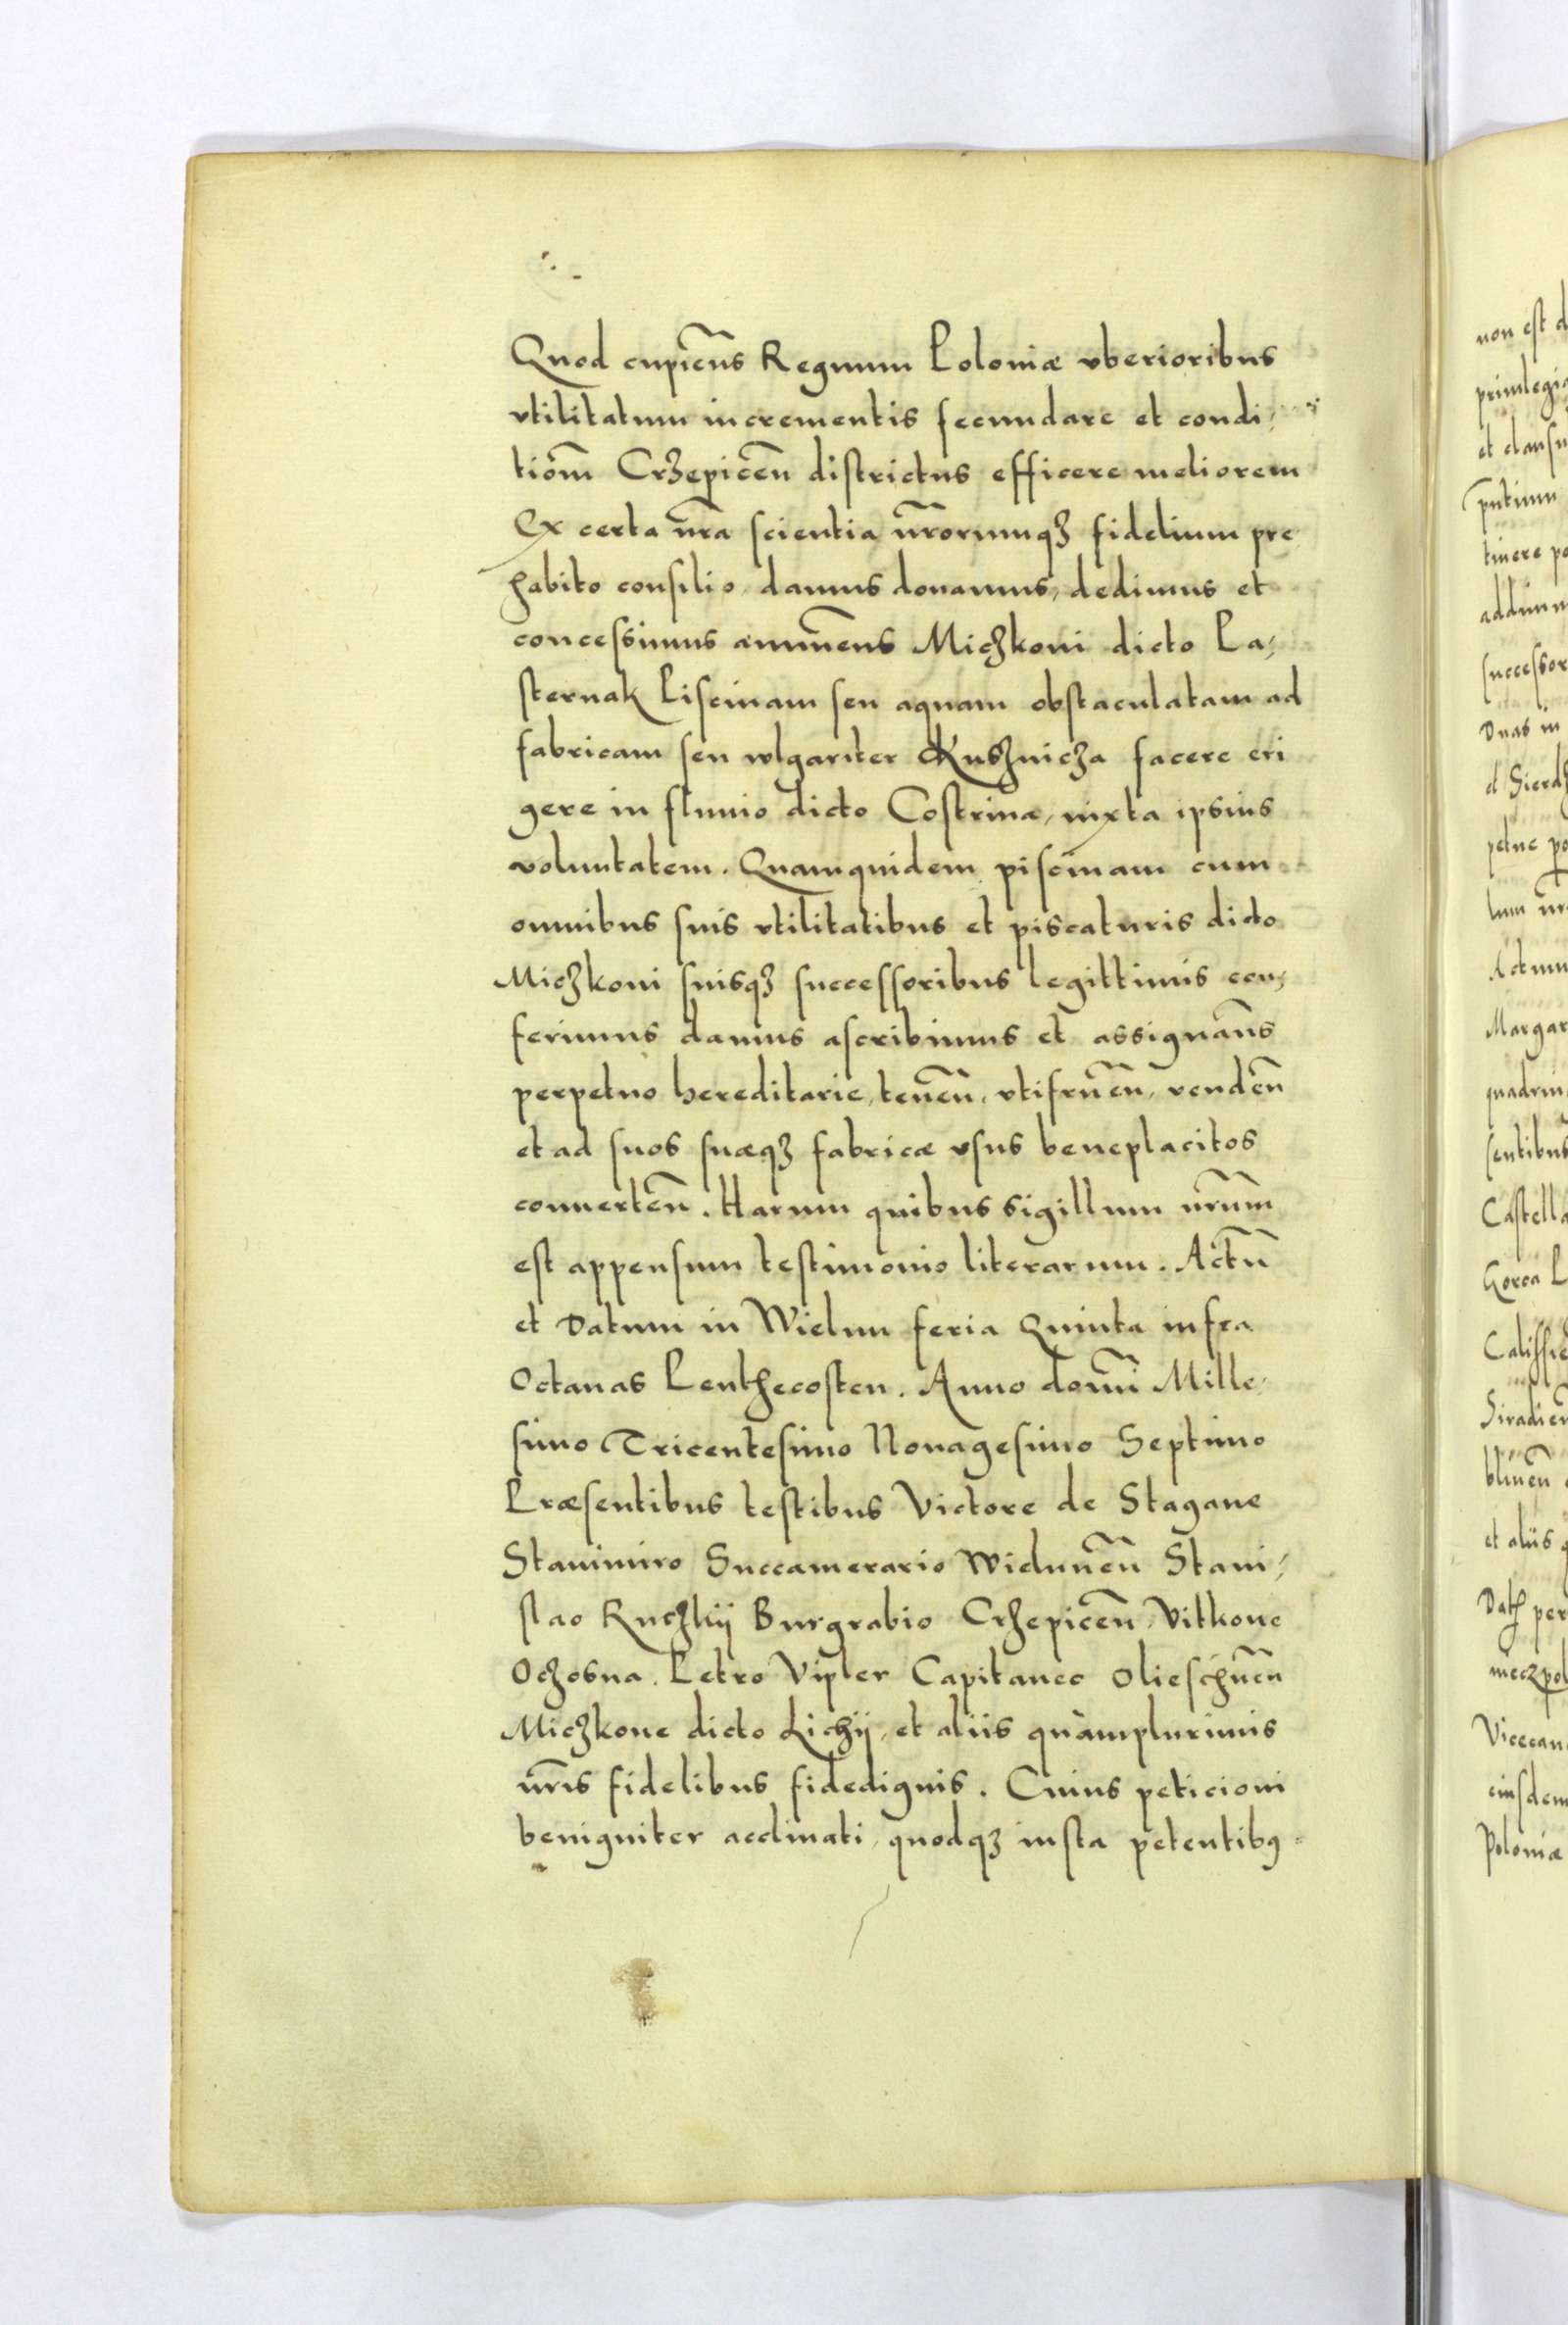 Quod cupien̄s Regnum Poloniæ vberioribus
vtilitatum incrementis fecundare et condi,
tiom̄ Crzepicen̄ districtus efficere meliorem
Ex certa nr̄a scientia nr̄orumqȝ fidelium pre
habito consilio, damus donamus, dedimus et
concessimus Miczkoni dicto Pa,
sternak Piscinam seu aquam obstaculatam ad
fabricam seu wlgariter Kusznicza facere eri
gere in fluuio dicto Costrina, iuxta ipsius
voluntatem. Quamquidem piscinam cum
omnibus suis vtilitatibus et piscaturis dicto
Miczkoni suisqȝ successoribus legittimis con,
ferimus damus ascribimus et assignam̄s
perpetuo hereditarie, tenen̄, vtifruen̄, venden̄
et ad suos suæqȝ fabricæ vsus beneplacitos
conuerten̄. Harum quibus sigillum nr̄um
est appensum testimonio literarum. Actū
et Datum in Wielun feria Quinta infra
Octauas Penthecosten. Anno domi̅ Mille,
simo Tricentesimo Nonagesimo Septimo
Præsentibus testibus Victore de Stagane
Stanimiro Succamerario Wielunen̄ Stani,
slao Ruczkij Burgrabio Crzepicen̄, Vitkone
Oczosna. Petro Vipler Capitaneo Olieschnen̄
Miczkone dicto Lichij, et aliis quàmplurimis
nr̄is fidelibus fidedignis. Cuius peticioni
benigniter acclinati, quodqȝ iusta petentibꝰ
non est d
priuilegia
et clausu
tinere po
successor
Duas in
d Sierdz
petue per
lum nr̄
Actum
Margar
quadrin
sentibus
Castella
Gorca P
Siradien̄
blinen̄
et aliis q
Dat per
Vicecan
eiusdem
Poloniæ